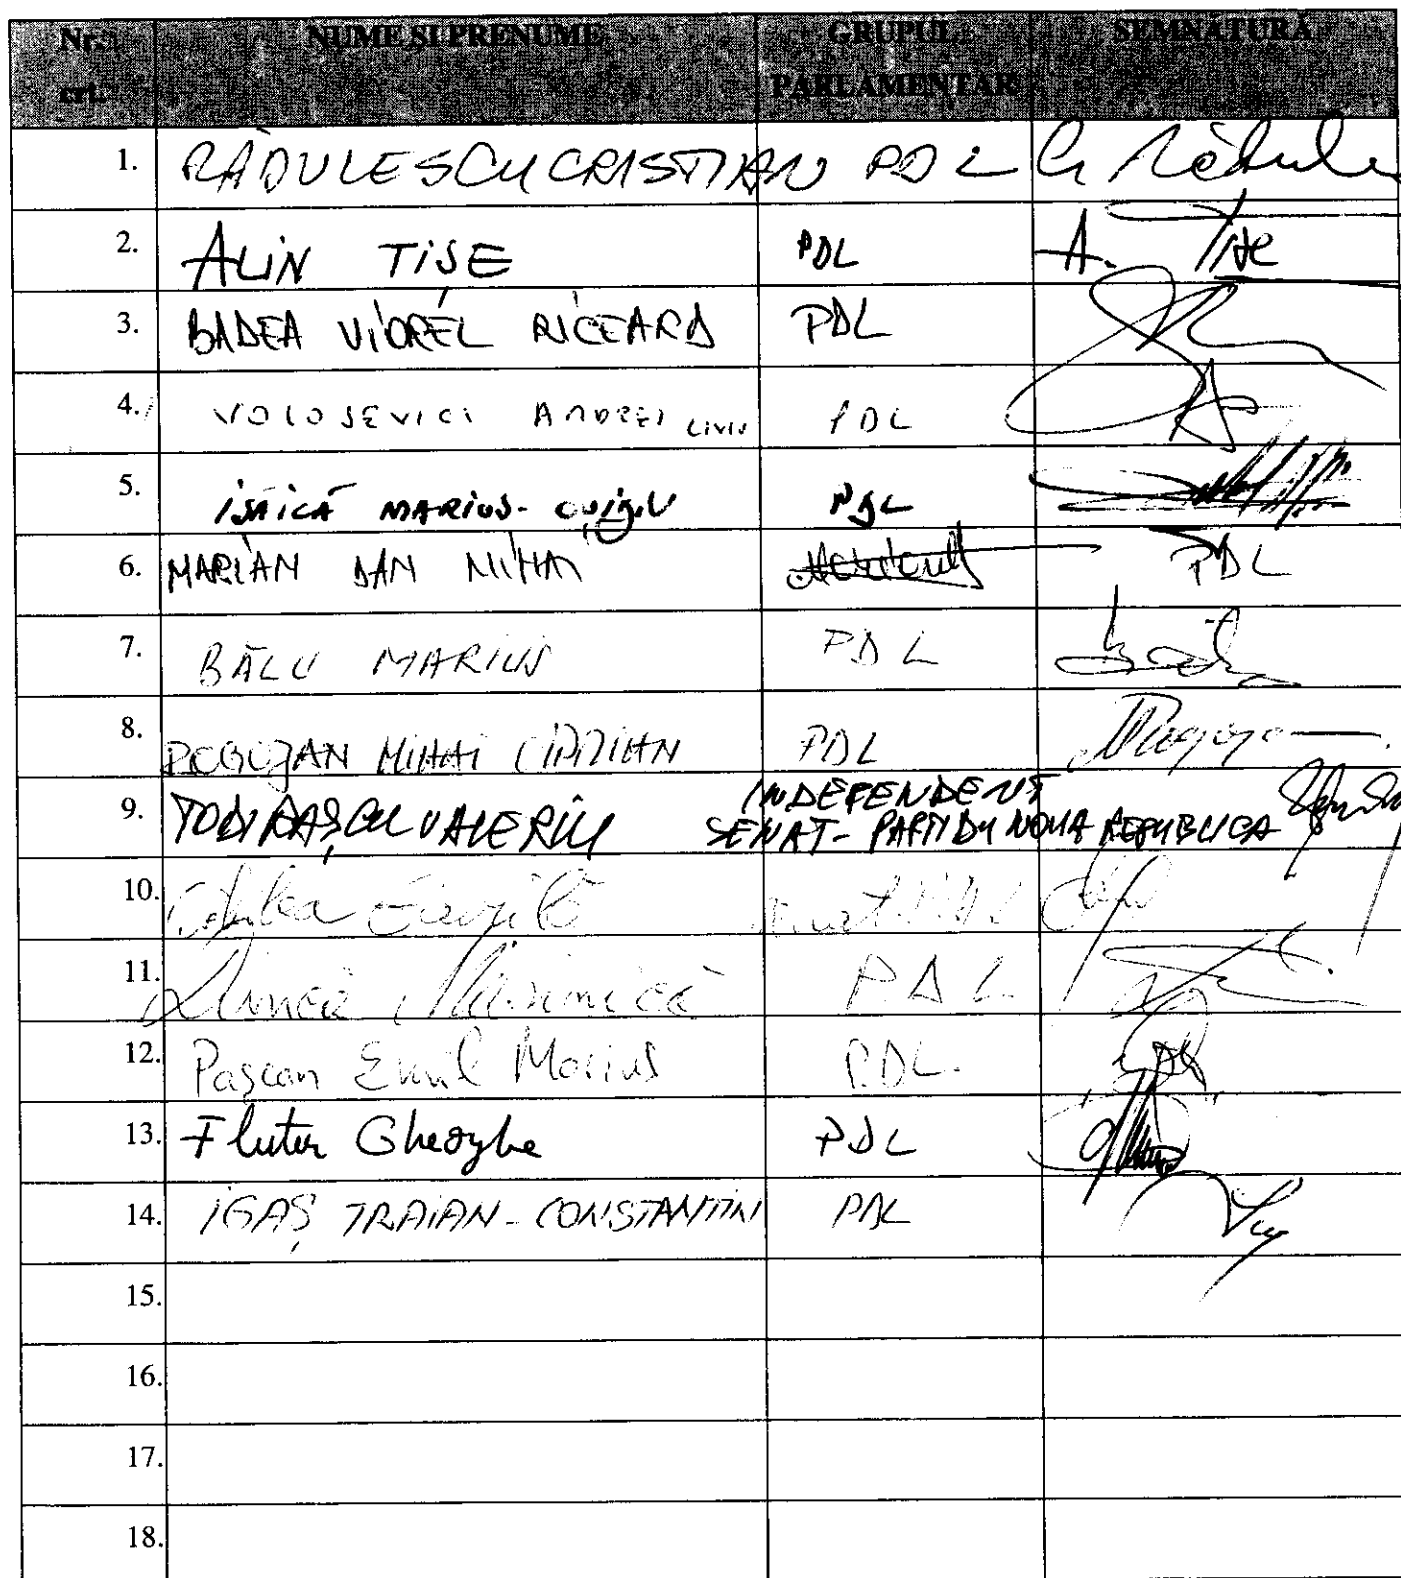 Nr. NUME SI PRENUME GRUPUL SEMNĂTURĂ
crt. PARLAMENTAR
1. RĂDULESCU CRISTIAN PDL
2. ALIN TIȘE PDL A. Tișe
3. BADEA VIOREL RICEARD PDL
4. VOLOSEVICI ANDREI LIVIU PDL
5. ISĂICĂ MARIUS-OVIDIU PDL
6. MARIAN DAN MIHAI PDL
7. BĂLU MARIUS PDL
8. ROGOJAN MIHAI CIPRIAN PDL
9. TODIRAȘCU VALERIU INDEPENDENT
SENAT - PARTIDU NOUA REPUBLICA
10.
11. PDL
12. Pașcan Emil Marius PDL.
13. Flutur Gheorghe PDL
14. IGAȘ TRAIAN-CONSTANTIN PDL
15.
16.
17.
18.